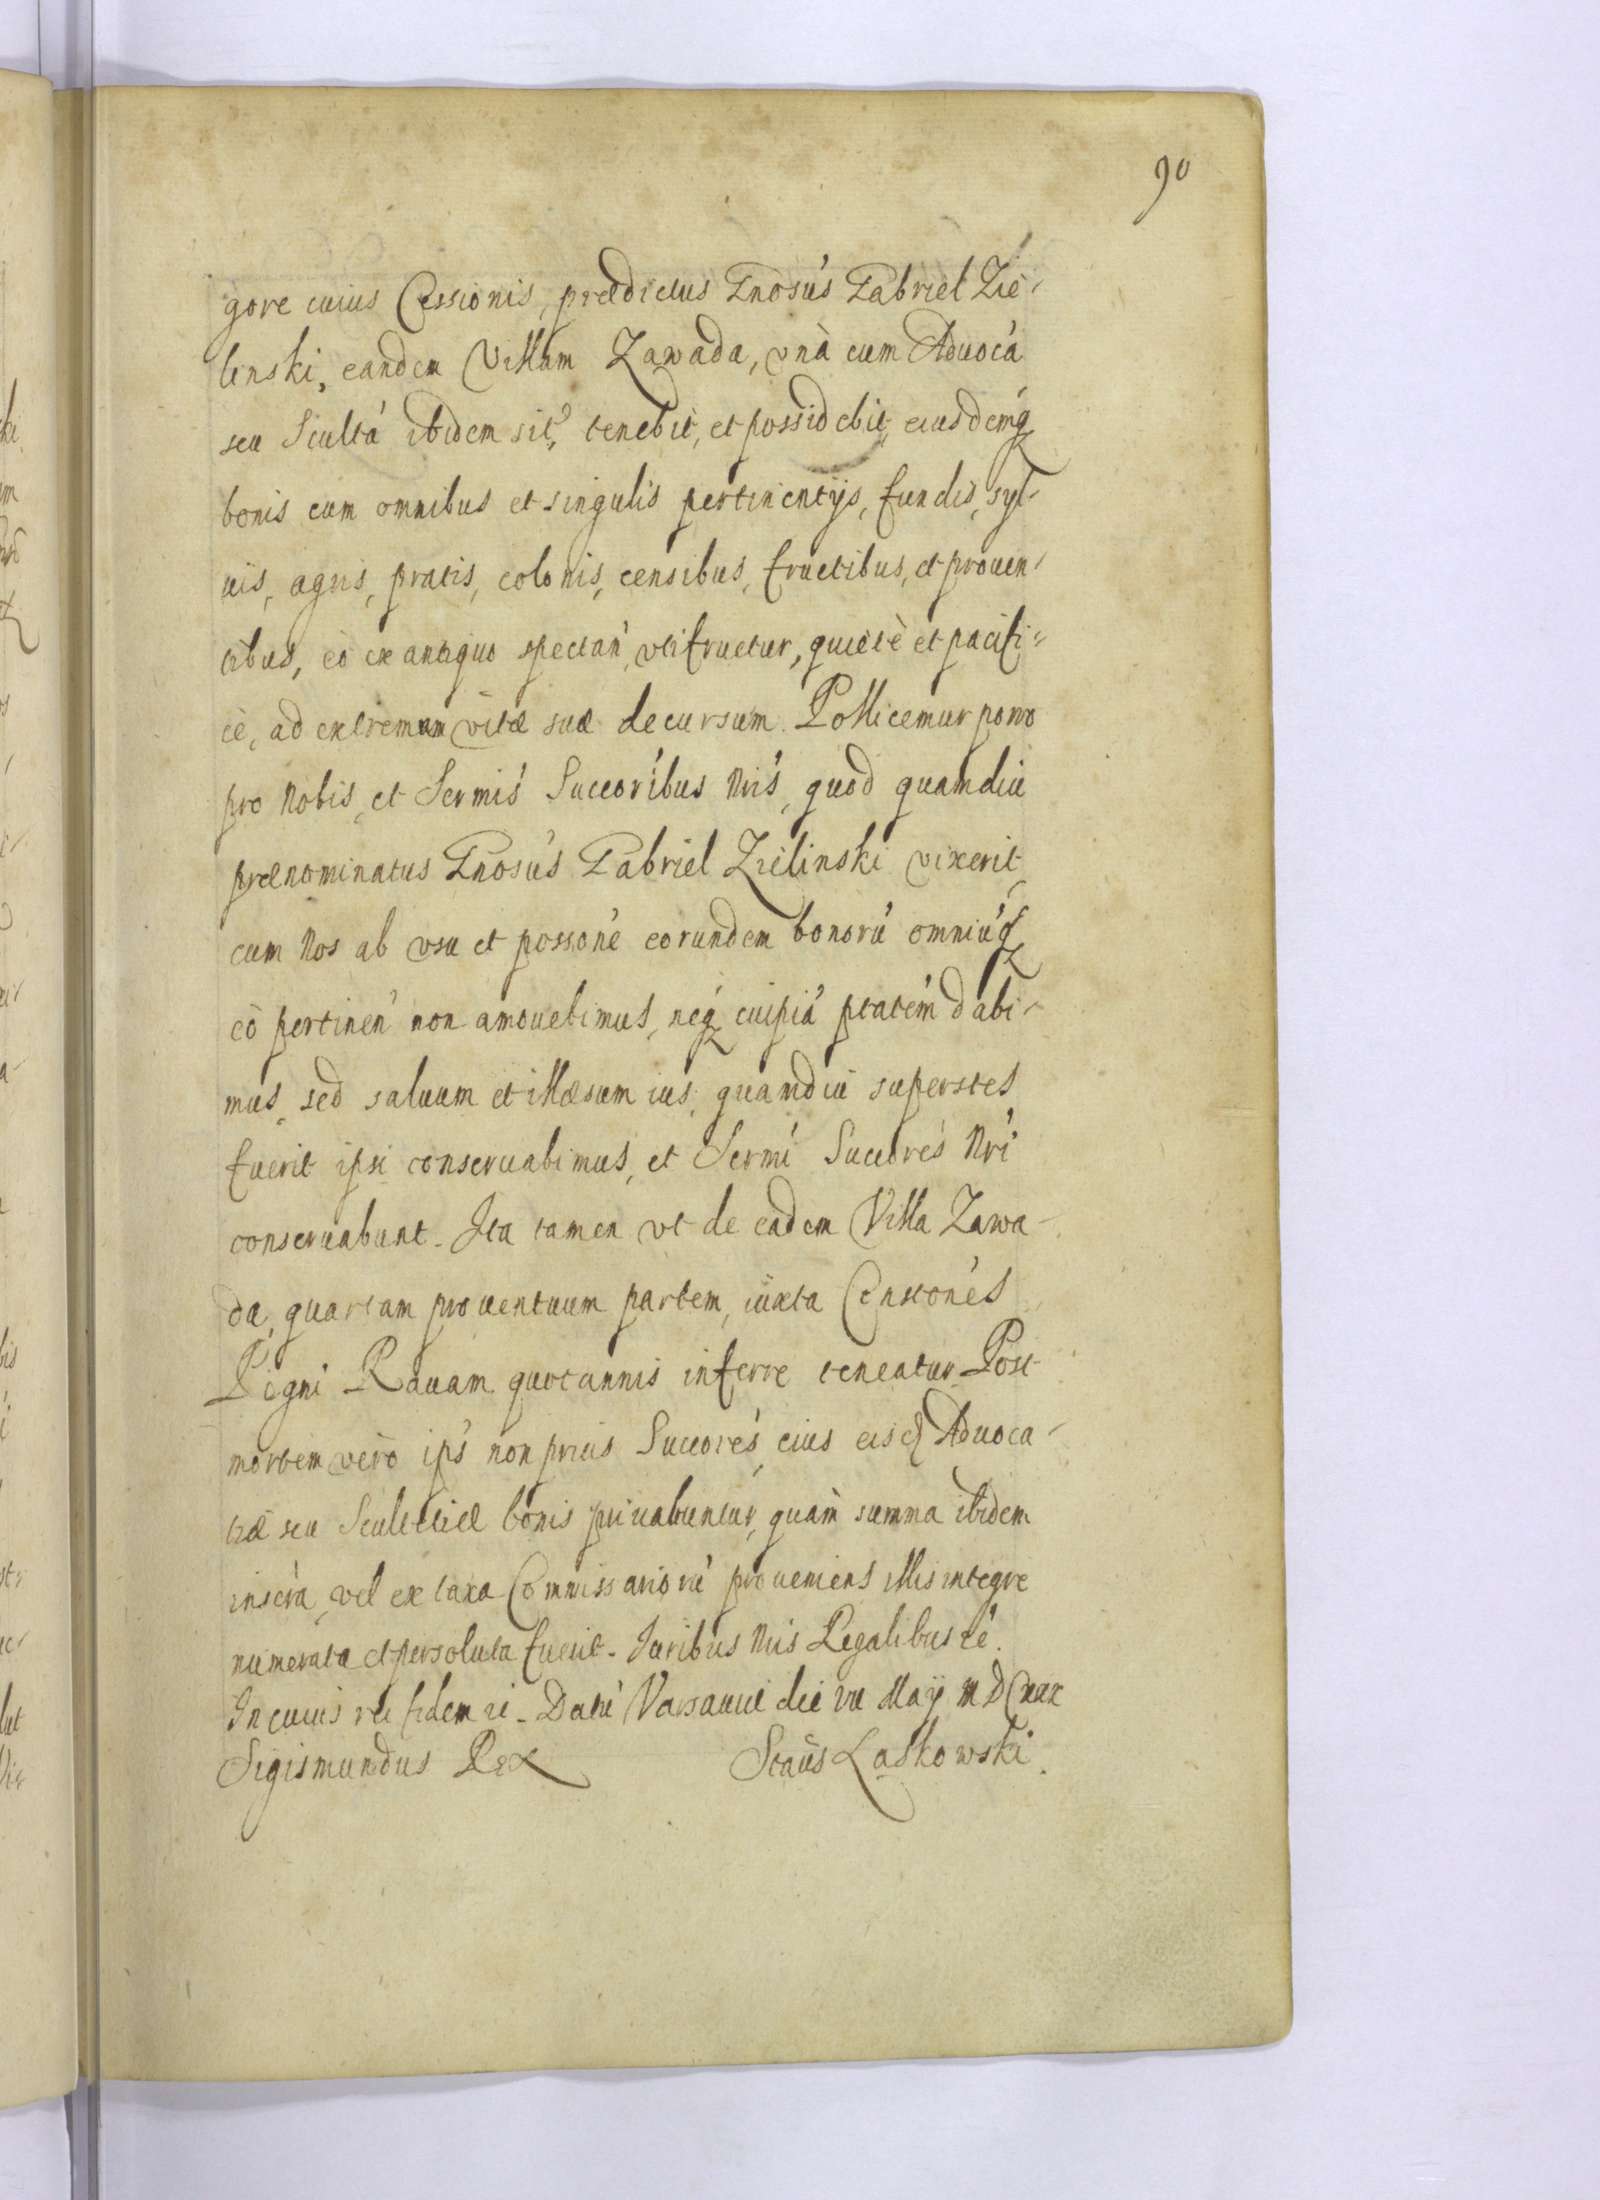 90
gore cuius Cessionis, prædictus Gnosús Gabriel Zie-
linski, eandem Villam Zawada, vnà cum Aduocá
seu Scultá ibidem sit, tenebit, et possidebit, eiusdemq́
bonis cum omnibus et singulis pertinentijs, fundis, syl-
uis, agris, pratis, colonis, censibus, fructibus, et prouen-
tibus, eò ex antiquo spectan, vtifruetur, quietè et pacifi=
cè, ad extremum vitæ suæ decursum. Pollicemur porro
pro Nobis, et Sermis Succoribus Nris, quod quamdiu
prænominatus Gnosús Gabriel Zielinski vixerit,
eum Nos ab vsu et possoné eorundem bonorú omniúq
eò pertineń non amouebimus, neq́ cuipiá ptatém dabi-
mus, sed saluum et illæsum ius, quamdiu superstes
fuerit ipsi conseruabimus, et Sermi Succorés Nri
conseruabunt. Ita tamen vt de eadem Villa Zawa-
da, quartam prouentuum partem, iuxta Constonés
Regni Rauam quotannis inferre teneatur. Post
mortem verò ips non prius Succorés eius eisd Aduoca-
tiæ seu Scultetiæ bonis priuabuntur, quàm summa ibidem
inscra, vel ex taxa Commissariorú proueniens illis integre
numerata et persoluta fuerit. Iuribus Nris Regalibus ré.
In cuius rei fidem ré. Datú Varsauiæ die VII May MDCXXX
Sigismundus Rex Staus Laskowski.